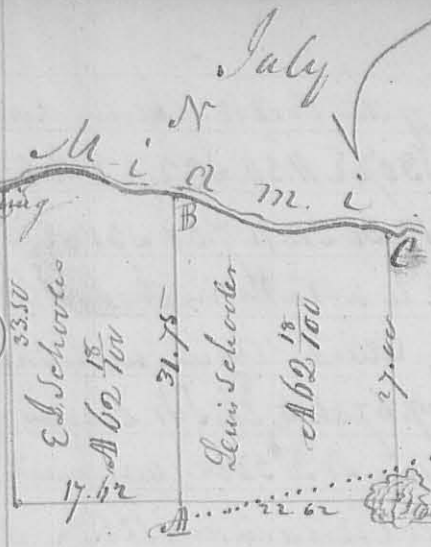 July
N
Miami
B
C
33.50
E I Schooler
A 62 18/100
31.75
Lewis Schooler
A 62 18/100
27.00
17.42
A
22 62